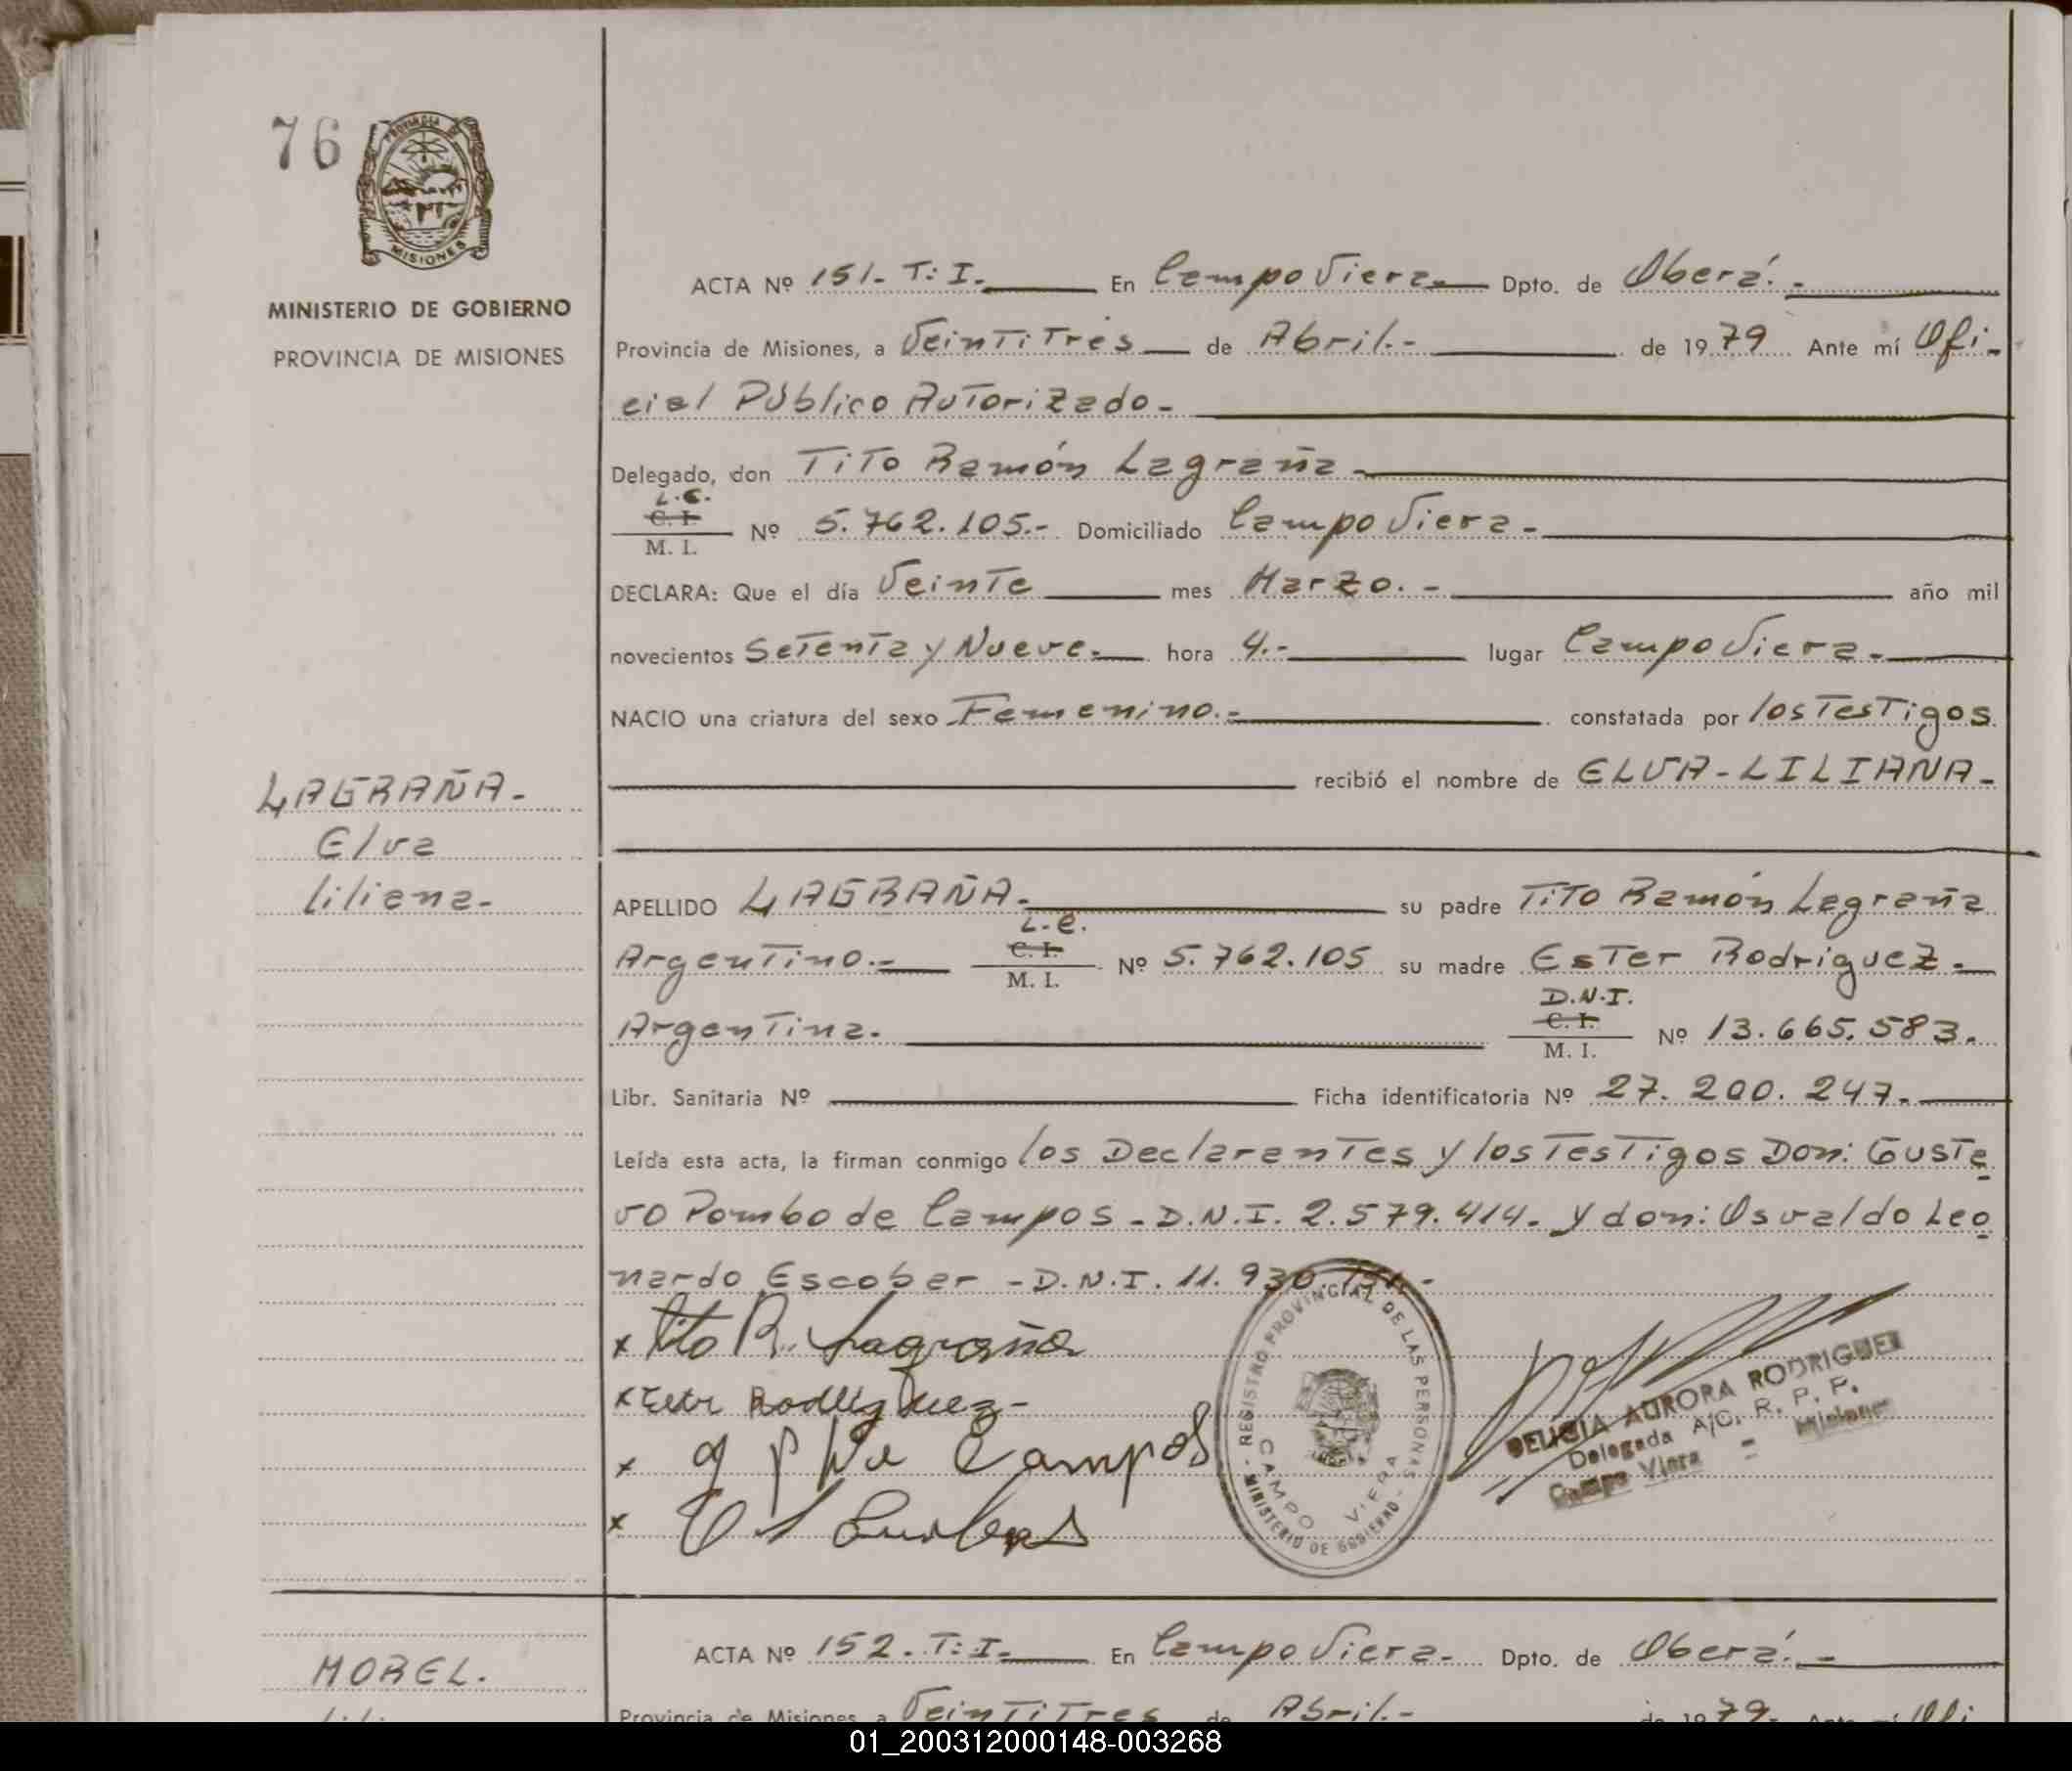 76
PROVINCIA DE
MISIONES
MINISTERIO DE GOBIERNO
PROVINCIA DE MISIONES
ACTA Nº 151.- T: I.- En Campo Viera.- Dpto. de Oberá.-
Provincia de Misiones, a Veintitres de Abril.- de 1979 Ante mí Ofi-
cial Público Autorizado.-
Delegado, don Tito Ramón Lagraña.-
L.E.
C. I.
M. I. Nº 5.762.105.- Domiciliado Campo Viera.-
DECLARA: Que el día Veinte mes Marzo.- año mil
novecientos Setenta y Nueve.- hora 4.- lugar Campo Viera.-
NACIO una criatura del sexo Femenino.- constatada por los Testigos
recibió el nombre de ELVA-LILIANA-
LAGRAÑA.-
Elva
Liliana-
APELLIDO LAGRAÑA.- su padre Tito Ramón Lagraña
L.E.
Argentino.- C. I.
M. I. Nº 5.762.105 su madre Ester Rodriguez.-
D.N.I.
Argentina. C. I.
M. I. Nº 13.665.583.
Libr. Sanitaria Nº Ficha identificatoria Nº 27.200.247.-
Leída esta acta, la firman conmigo los Declarantes y los Testigos Don: Gusta
vo Pombo de Campos - D.N.I. 2.579.414. y don: Osvaldo Leo
nardo Escobar - D.N.I. 11.930.
x Tito R. Lagraña
x Ester Rodriguez-
x G P De Campos
x
REGISTRO PROVINCIAL DE LAS PERSONAS - MINISTERIO DE GOBIERNO -
CAMPO VIERA
DELICIA AURORA RODRIGUEZ
Delegada A/C. R. P. P.
Campo Viera - Misiones
ACTA Nº 152. T: I.- En Campo Viera.- Dpto. de Oberá.-
MOREL.
Provincia de Misiones, a Veintitres de Abril.- de 1979. Ante mí Ofi
01_200312000148-003268